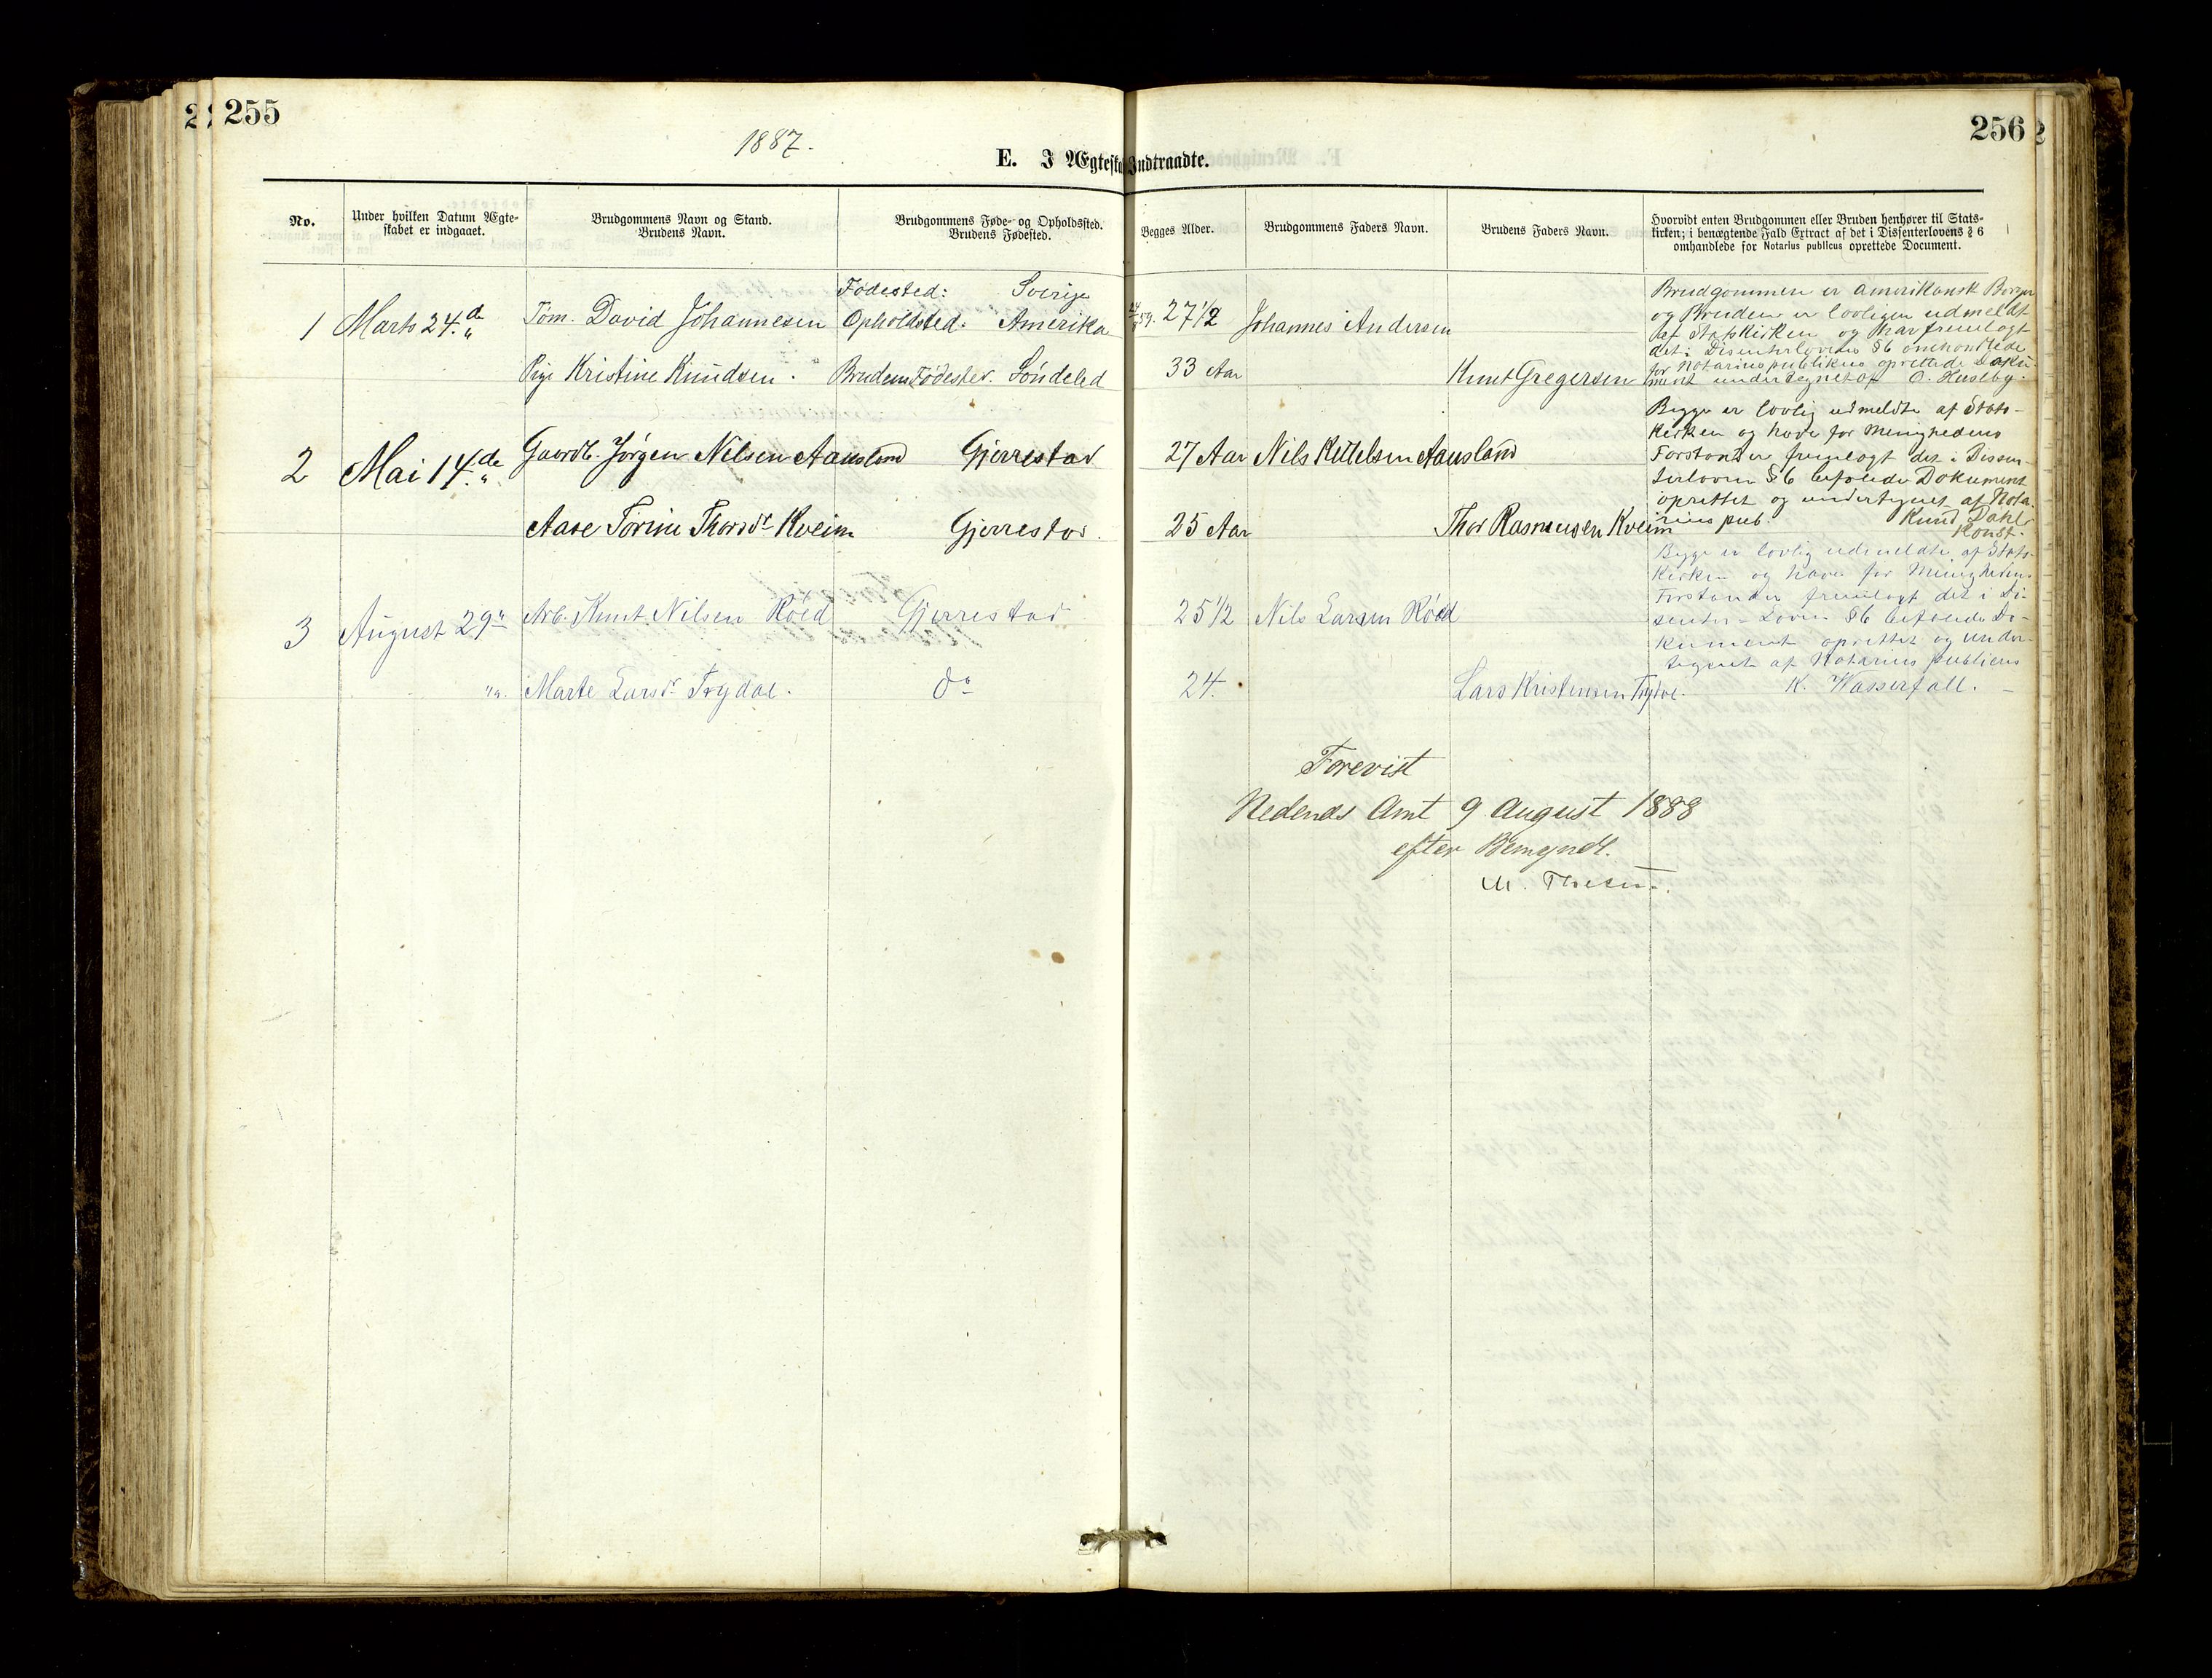 255
256
1887.
E. I Ægteskab Indtraadte.
No.
Under hvilken Datum Ægte-
skabet er indgaaet.
Brudgommens Navn og Stand.
Brudens Navn.
Brudgommens Føde- og Opholdssted.
Brudens Fødested.
Begges Alder.
Brudgommens Faders Navn.
Brudens Faders Navn.
Hvorvidt enten Brudgommen eller Bruden henhører til Stats-
kirken; i benægtende Fald Extract af det i Dissenterlovens § 6
omhandlede for Notarius publicus oprettede Document.
1 Marts 24. de
Tøm. David Johannesen
Pige Kristine Knudsen.
Fødested: Sverige
Opholdsted: Amerika
Brudens Fødested. Söndeled
27 1/2
33 Aar
Johannes Andersen
Knut Gregersen
Brudgommen er amerikansk Borger
og Bruden er lovligen udmeldt
af Statskirken og har fremlagt
det i Disenterlovens §6 omhandlede
for Notarius publikus oprettede Doku-
ment undertegnet af O. Huseby.
2 Mai 14. de
Gaardb. Jørgen Nilsen Aausland
Aase Torine Thorsdr Kveim
Gjerrestad
Gjerrestad.
27 Aar
25 Aar
Nils Kittelsen Aausland
Thor Rasmusen Kveim
Begge er lovlig udmeldte af Stats-
kirken og have for Menighedens
Forstander fremlagt det i Dissen-
terloven §6 befalede Dokument
oprettet og undertegnet af Nota-
rius pub. Knud Dahl
Konst.
3 August 29
Arb. Knut Nilsen Röed
Marte Larsdr Trydal.
Gjerrestad
do
25 1/2
24.
Nils Larsen Röed
Lars Kristensen Trydal.
Begge er lovlig udmeldte af Stats-
kirken og have for Menighedens
Forstander fremlagt det i Di-
senter-Loven §6 befalede Do-
kument oprettet og under-
tegnet af Notarius publicus
K. Wasserfall.
Forevist
Nedenæs Amt 9 August 1888
efter Bemyndl.